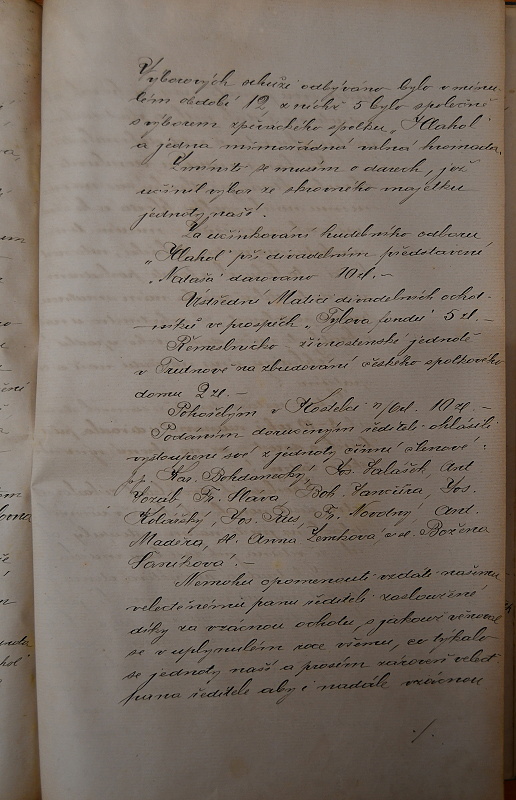 Výborových schůzí odbýváno bylo v minu-
lém období 12 z nichž 5 bylo společně
s výborem zpěváckého spolku „Hlahol“
a jedna mimořádná valná hromada.
Zmíniti se musím o darech, jež
učinil výbor ze skrovného majetku
jednoty naší.
Za účinkování hudebního odboru
„Hlahol“ při divadelním představení
„Nataša“ darováno 10 zl. –
Ústřední Matici divadelních ochot-
níků ve prospěch „Tylova fondu“ 5 zl. –
Řemeslnicko živnostenské jednotě
v Trutnově na zbudování českého spolkového
domu 2 zl. –
Pohořelým v Kostelci n/Orl. 10 zl. –
Podáním doručeným řediteli ohlásili
vystoupení své z jednoty činní členové:
p.p. Kar. Bohdanecký, Jos. Valášek, Ant.
Vozáb Fr. Sláva, Boh. Vančura, Jos.
Kolářský, Jos. Rus, Fr. Novotný, Ant.
Maděra, sl. Anna Zemková a sl. Božena
Vaníková. –
Nemohu opomenouti vzdáti našemu
velectěnému panu řediteli zasloužené
díky za vzácnou ochotu, s jakouž věnoval
se v uplynulém roce všemu, co týkalo
se jednoty naší a prosím zároveň velect.
pana ředitele aby i nadále vzácnou
./.